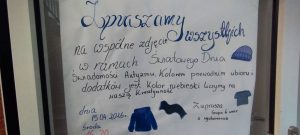 Zapraszamy wszystkich
na wspólne zdjęcie
w ramach Światowego Dnia
Świadomości Autyzmu. Kolorem przewodnim ubioru i
dodatków jest kolor niebieski. Liczymy na
naszą kreatywność
dnia
15.04.2026r.
środa
Zaprasza
Grupa 6 wraz
z wychowawcą